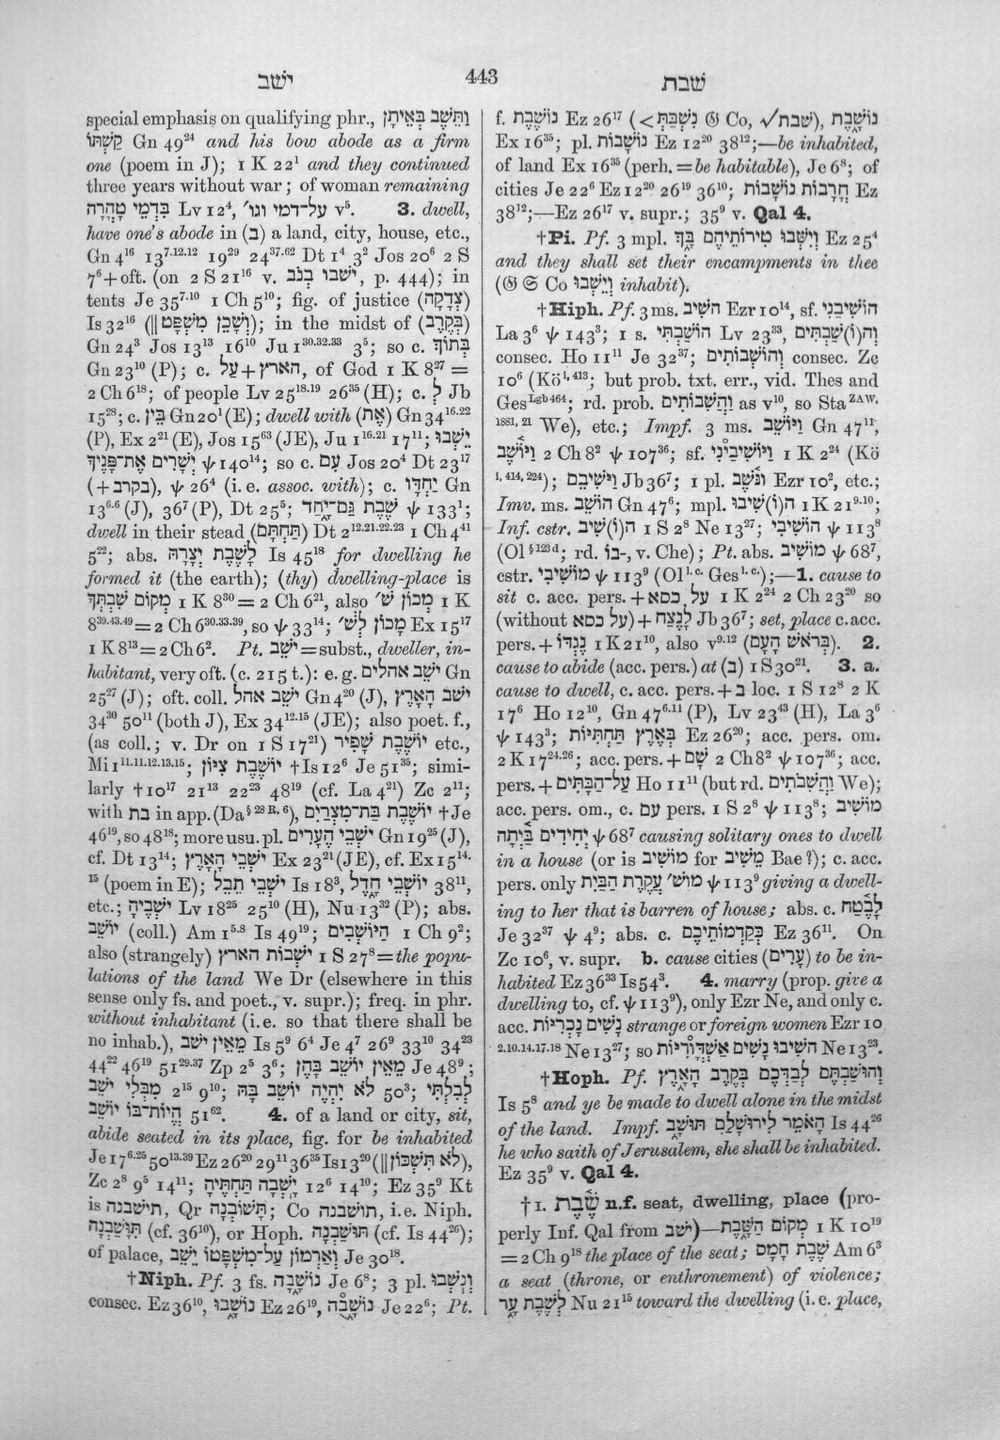 ישׁב
443
שׁבת
special emphasis on qualifying phr., וַתֵּשֶׁב בְּאֵיתָן
קַשְׁתּוֹ Gn 49²⁴ and his bow abode as a firm
one (poem in J); 1 K 22¹ and they continued
three years without war; of woman remaining
בִּדְמֵי טָהֳרָה Lv 12⁴, על־דמי וגו׳ v⁵. 3. dwell,
have one's abode in (בְּ) a land, city, house, etc.,
Gn 4¹⁶ 13⁷·¹²·¹² 19²⁹ 24³⁷·⁶² Dt 1⁴ 3² Jos 20⁶ 2 S
7⁶ + oft. (on 2 S 21¹⁶ v. ישבו בנב, p. 444); in
tents Je 35⁷·¹⁰ 1 Ch 5¹⁰; fig. of justice (צְדָקָה)
Is 32¹⁶ (‖ וְשָׁכַן מִשְׁפָּט); in the midst of (בְּקֶרֶב)
Gn 24³ Jos 13¹³ 16¹⁰ Ju 1³⁰·³²·³³ 3⁵; so c. בְּתוֹךְ
Gn 23¹⁰ (P); c. עַל + הארץ, of God 1 K 8²⁷ =
2 Ch 6¹⁸; of people Lv 25¹⁸·¹⁹ 26³⁵ (H); c. לְ Jb
15²⁸; c. בֵּין Gn 20¹ (E); dwell with (אֶת) Gn 34¹⁶·²²
(P), Ex 2²¹ (E), Jos 15⁶³ (JE), Ju 1¹⁶·²¹ 17¹¹; יֵשְׁבוּ
יְשָׁרִים אֶת־פָּנֶיךָ ψ 140¹⁴; so c. עִם Jos 20⁴ Dt 23¹⁷
(+ בקרב), ψ 26⁴ (i. e. assoc. with); c. יַחְדָּו Gn
13⁶·⁶ (J), 36⁷ (P), Dt 25⁵; שֶׁבֶת גַּם־יָחַד ψ 133¹;
dwell in their stead (תַּחְתָּם) Dt 2¹²·²¹·²²·²³ 1 Ch 4⁴¹
5²²; abs. לָשֶׁבֶת יְצָרָהּ Is 45¹⁸ for dwelling he
formed it (the earth); (thy) dwelling-place is
מְקוֹם שִׁבְתְּךָ 1 K 8³⁰ = 2 Ch 6²¹, also מְכוֹן שׁ׳ 1 K
8³⁹·⁴³·⁴⁹ = 2 Ch 6³⁰·³³·³⁹, so ψ 33¹⁴; מָכוֹן לְשׁ׳ Ex 15¹⁷
1 K 8¹³ = 2 Ch 6². Pt. יֹשֵׁב = subst., dweller, in-
habitant, very oft. (c. 215 t.): e. g. ישֵׁב אהלים Gn
25²⁷ (J); oft. coll. ישֵׁב אהל Gn 4²⁰ (J), ישב הָאָרֶץ
34³⁰ 50¹¹ (both J), Ex 34¹²·¹⁵ (JE); also poet. f.,
(as coll.; v. Dr on 1 S 17²¹) יוֹשֶׁבֶת שָׁפִיר etc.,
Mi 1¹¹·¹¹·¹²·¹³·¹⁵; יוֹשֶׁבֶת צִיּוֹן †Is 12⁶ Je 51³⁵; simi-
larly †10¹⁷ 21¹³ 22²³ 48¹⁹ (cf. La 4²¹) Zc 2¹¹;
with בת in app. (Da§ 28 R. 6), יוֹשֶׁבֶת בַּת־מִצְרַיִם †Je
46¹⁹, so 48¹⁸; more usu. pl. ישְׁבֵי הֶעָרִים Gn 19²⁵ (J),
cf. Dt 13¹⁴; ישְׁבֵי הָאָרֶץ Ex 23²¹ (JE), cf. Ex 15¹⁴·
¹⁵ (poem in E); ישְׁבֵי תֵבֵל Is 18³, יוֹשְׁבֵי חָדֶל 38¹¹,
etc.; ישְׁבֶיהָ Lv 18²⁵ 25¹⁰ (H), Nu 13³² (P); abs.
יוֹשֵׁב (coll.) Am 1⁵·⁸ Is 49¹⁹; הַיּוֹשְׁבִים 1 Ch 9²;
also (strangely) ישְׁבוֹת הארץ 1 S 27⁸ = the popu-
lations of the land We Dr (elsewhere in this
sense only fs. and poet., v. supr.); freq. in phr.
without inhabitant (i. e. so that there shall be
no inhab.), מֵאֵין ישֵׁב Is 5⁹ 6⁴ Je 4⁷ 26⁹ 33¹⁰ 34²³
44²² 46¹⁹ 51²⁹·³⁷ Zp 2⁵ 3⁶; מֵאֵין יוֹשֵׁב בָּהֶן Je 48⁹;
לְבִלְתִּי 50³; לֹא יִהְיֶה יוֹשֵׁב בָּהּ 2¹⁵ 9¹⁰; מִבְּלִי ישֵׁב
הֱיוֹת־בּוֹ יוֹשֵׁב 51⁶². 4. of a land or city, sit,
abide seated in its place, fig. for be inhabited
Je 17⁶·²⁵ 50¹³·³⁹ Ez 26²⁰ 29¹¹ 36³⁵ Is 13²⁰ (‖ לֹא תִשְׁכּוֹן),
Zc 2⁸ 9⁵ 14¹¹; יָשְׁבָה תַחְתֶּיהָ 12⁶ 14¹⁰; Ez 35⁹ Kt
is תישבנה, Qr תָּשׁוֹבְנָה; Co תושבנה, i. e. Niph.
תִּוָּשַׁבְנָה (cf. 36¹⁰), or Hoph. תּוּשַׁבְנָה (cf. Is 44²⁶);
of palace, וְאַרְמוֹן עַל־מִשְׁפָּטוֹ יֵשֵׁב Je 30¹⁸.
†Niph. Pf. 3 fs. נוֹשָׁבָה Je 6⁸; 3 pl. וְנֽוֹשְׁבוּ
consec. Ez 36¹⁰, נוֹשָׁבוּ Ez 26¹⁹, נוֹשָׁבֻה Je 22⁶; Pt.
f. נוֹשֶׁבֶת Ez 26¹⁷ (< נִשְׁבַּתְּ 𝔊 Co, √שׁבת), נוֹשָׁבֶת
Ex 16³⁵; pl. נוֹשָׁבוֹת Ez 12²⁰ 38¹²;—be inhabited,
of land Ex 16³⁵ (perh. = be habitable), Je 6⁸; of
cities Je 22⁶ Ez 12²⁰ 26¹⁹ 36¹⁰; חֳרָבוֹת נוֹשָׁבוֹת Ez
38¹²;—Ez 26¹⁷ v. supr.; 35⁹ v. Qal 4.
†Pi. Pf. 3 mpl. וְיִשְּׁבוּ טִירוֹתֵיהֶם בָּךְ Ez 25⁴
and they shall set their encampments in thee
(𝔊 𝔖 Co וְיָשְׁבוּ inhabit).
†Hiph. Pf. 3 ms. השִׁיב Ezr 10¹⁴, sf. הוֹשִׁיבַנִי
La 3⁶ ψ 143³; 1 s. הוֹשַׁבְתִּי Lv 23³³, וְה(וֹ)שַׁבְתִּים
consec. Ho 11¹¹ Je 32³⁷; וְהוֹשְׁבוֹתִים consec. Zc
10⁶ (Kö I, 413; but prob. txt. err., vid. Thes and
Ges Lgb 464; rd. prob. וַהֲשִׁבוֹתִים as v¹⁰, so Sta ZAW,
1881, 21 We), etc.; Impf. 3 ms. וַיּוֹשֵׁב Gn 47¹¹,
וַיּוֹשֶׁב 2 Ch 8² ψ 107³⁶; sf. וַיּוֹשִׁיבֵנִי 1 K 2²⁴ (Kö
I, 414, 224); וַיּשִׁיבֵם Jb 36⁷; 1 pl. וַנֹּשֶׁב Ezr 10², etc.;
Imv. ms. הוֹשֵׁב Gn 47⁶; mpl. ה(וֹ)שִׁיבוּ 1 K 21⁹·¹⁰;
Inf. cstr. ה(וֹ)שִׁיב 1 S 2⁸ Ne 13²⁷; הוֹשִׁיבִי ψ 113⁸
(Ol § 123 d; rd. בוֹ-, v. Che); Pt. abs. מוֹשִׁיב ψ 68⁷,
cstr. מוֹשִׁיבִי ψ 113⁹ (Ol l. c. Ges l. c.);—1. cause to
sit c. acc. pers. + עַל כסא 1 K 2²⁴ 2 Ch 23²⁰ so
(without על כסא) + לָנֶצַח Jb 36⁷; set, place c. acc.
pers. + נֶגְדּוֹ 1 K 21¹⁰, also v⁹·¹² (בְּרֹאשׁ הָעָם). 2.
cause to abide (acc. pers.) at (בְּ) 1 S 30²¹. 3. a.
cause to dwell, c. acc. pers. + בְּ loc. 1 S 12⁸ 2 K
17⁶ Ho 12¹⁰, Gn 47⁶·¹¹ (P), Lv 23⁴³ (H), La 3⁶
ψ 143³; בְּאֶרֶץ תַּחְתִּיּוֹת Ez 26²⁰; acc. pers. om.
2 K 17²⁴·²⁶; acc. pers. + שָׁם 2 Ch 8² ψ 107³⁶; acc.
pers. + עַל־הַבָּתִּים Ho 11¹¹ (but rd. וַהֲשִׁבֹתִים We);
acc. pers. om., c. עִם pers. 1 S 2⁸ ψ 113⁸; מוֹשִׁיב
יְחִידִים בַּיְתָה ψ 68⁷ causing solitary ones to dwell
in a house (or is מוֹשִׁיב for מֵשִׁיב Bae?); c. acc.
pers. only מוֹשׁ׳ עֲקֶרֶת הַבַּיִת ψ 113⁹ giving a dwell-
ing to her that is barren of house; abs. c. לָבֶטַח
Je 32³⁷ ψ 4⁹; abs. c. כְּקַדְמוֹתֵיכֶם Ez 36¹¹. On
Zc 10⁶, v. supr. b. cause cities (עָרִים) to be in-
habited Ez 36³³ Is 54³. 4. marry (prop. give a
dwelling to, cf. ψ 113⁹), only Ezr Ne, and only c.
acc. נָשִׁים נָכְרִיּוֹת strange or foreign women Ezr 10
²·¹⁰·¹⁴·¹⁷·¹⁸ Ne 13²⁷; so השִׁיבוּ נָשִׁים אַשְׁדֳּוֺדִיּוֺת Ne 13²³.
†Hoph. Pf. וְהוּשַׁבְתֶּם לְבַדְּכֶם בְּקֶרֶב הָאָרֶץ
Is 5⁸ and ye be made to dwell alone in the midst
of the land. Impf. הָאֹמֵר לִירוּשָׁלַםִ תּוּשָׁב Is 44²⁶
he who saith of Jerusalem, she shall be inhabited.
Ez 35⁹ v. Qal 4.
†I. שֶׁבֶת n.f. seat, dwelling, place (pro-
perly Inf. Qal from ישׁב)—מְקוֹם הַשֶּׁבֶת 1 K 10¹⁹
= 2 Ch 9¹⁸ the place of the seat; שֶׁבֶת חָמָס Am 6³
a seat (throne, or enthronement) of violence;
לְשֶׁבֶת עָר Nu 21¹⁵ toward the dwelling (i. e. place,